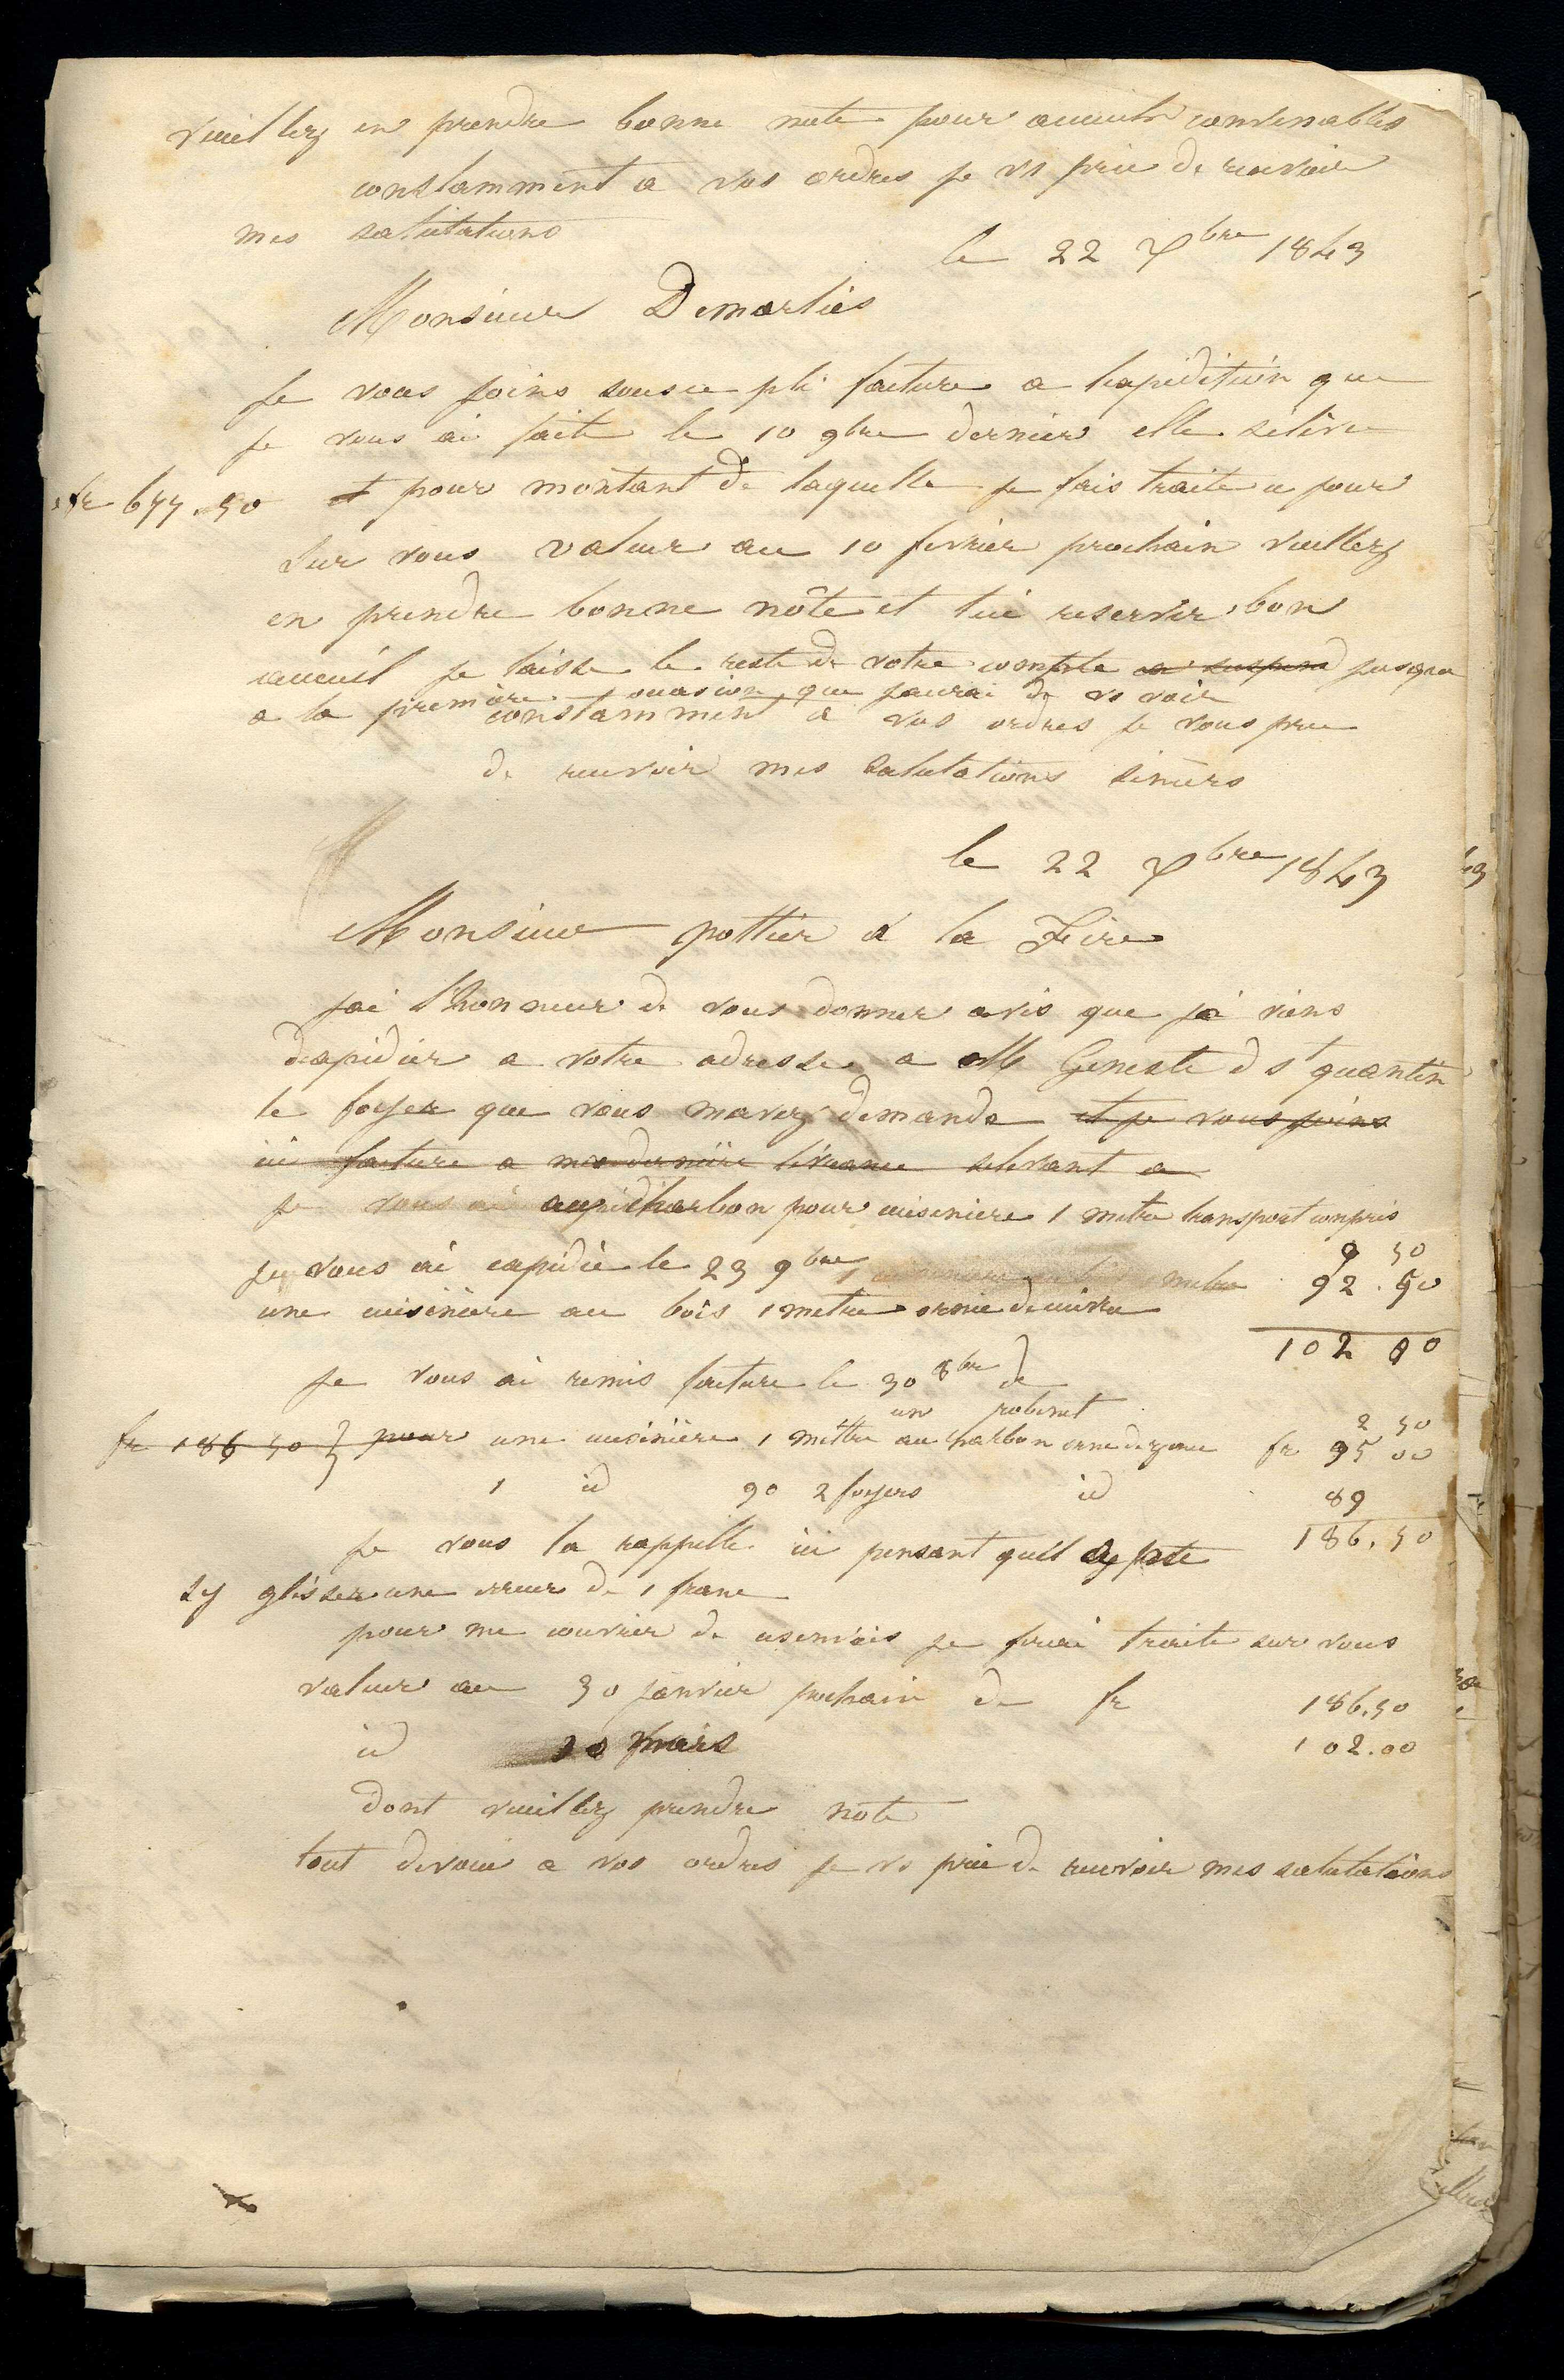 veuillez en prendre bonne note pour acceuils convenables
constamment a vos ordres je vs prie de recevoir
mes salutations
le 22 Xbre 1843
Monsieur Demarlies
Je vous joins sousce pli facture a lexpedition que
je vous ai faite le 10 9bre dernier elle sélève
fr 677.50 et pour montant de laquelle je fais traite a jour
sur vous valeur au 10 fevrier prochain veuillez
en prendre bonne nôte et lui reserver bon
acceuil je laisse le reste de votre compte jusqua
a la première ocasion que jaurai de vs voir
constamment a vos ordres je vous prie
de recevoir mes Salutations sincères
le 22 Xbre 1843
Monsieur pottier a la Fère
jai l'honneur de vous donner avis que jé viens
dexpidier a votre adresse a M Geneste d st quantin
le foyer que vous mavez demande et je vous joins
ici facture a ma dernière livrance selevant a
je vous ai charbon pour cuisiniere 1 metre transport compris
9 50
je vous ai expidié le 23 9bre metre 92.50
une cuisinière au bois 1 metre ornie de cuivre
102 00
Je vous ai remis facture le 30 8bre de
un robinet 2 50
fr 186 50 } pour une cuisinière 1 mètre au charbon orne de zinc fr 95 00
1 id 90 2 foyers id 89
186.50
Je vous la rappelle ici pensant quil
sy glisser une erreur de 1 franc
pour me couvrir de cesenvois je ferai traite sur vous
valeur au 30 janvier prochain de fr 186.50
id 10 mars 102.00
dont veuillez prendre note
tout devoué a vos ordres je vs prie de recevoir mes salutations